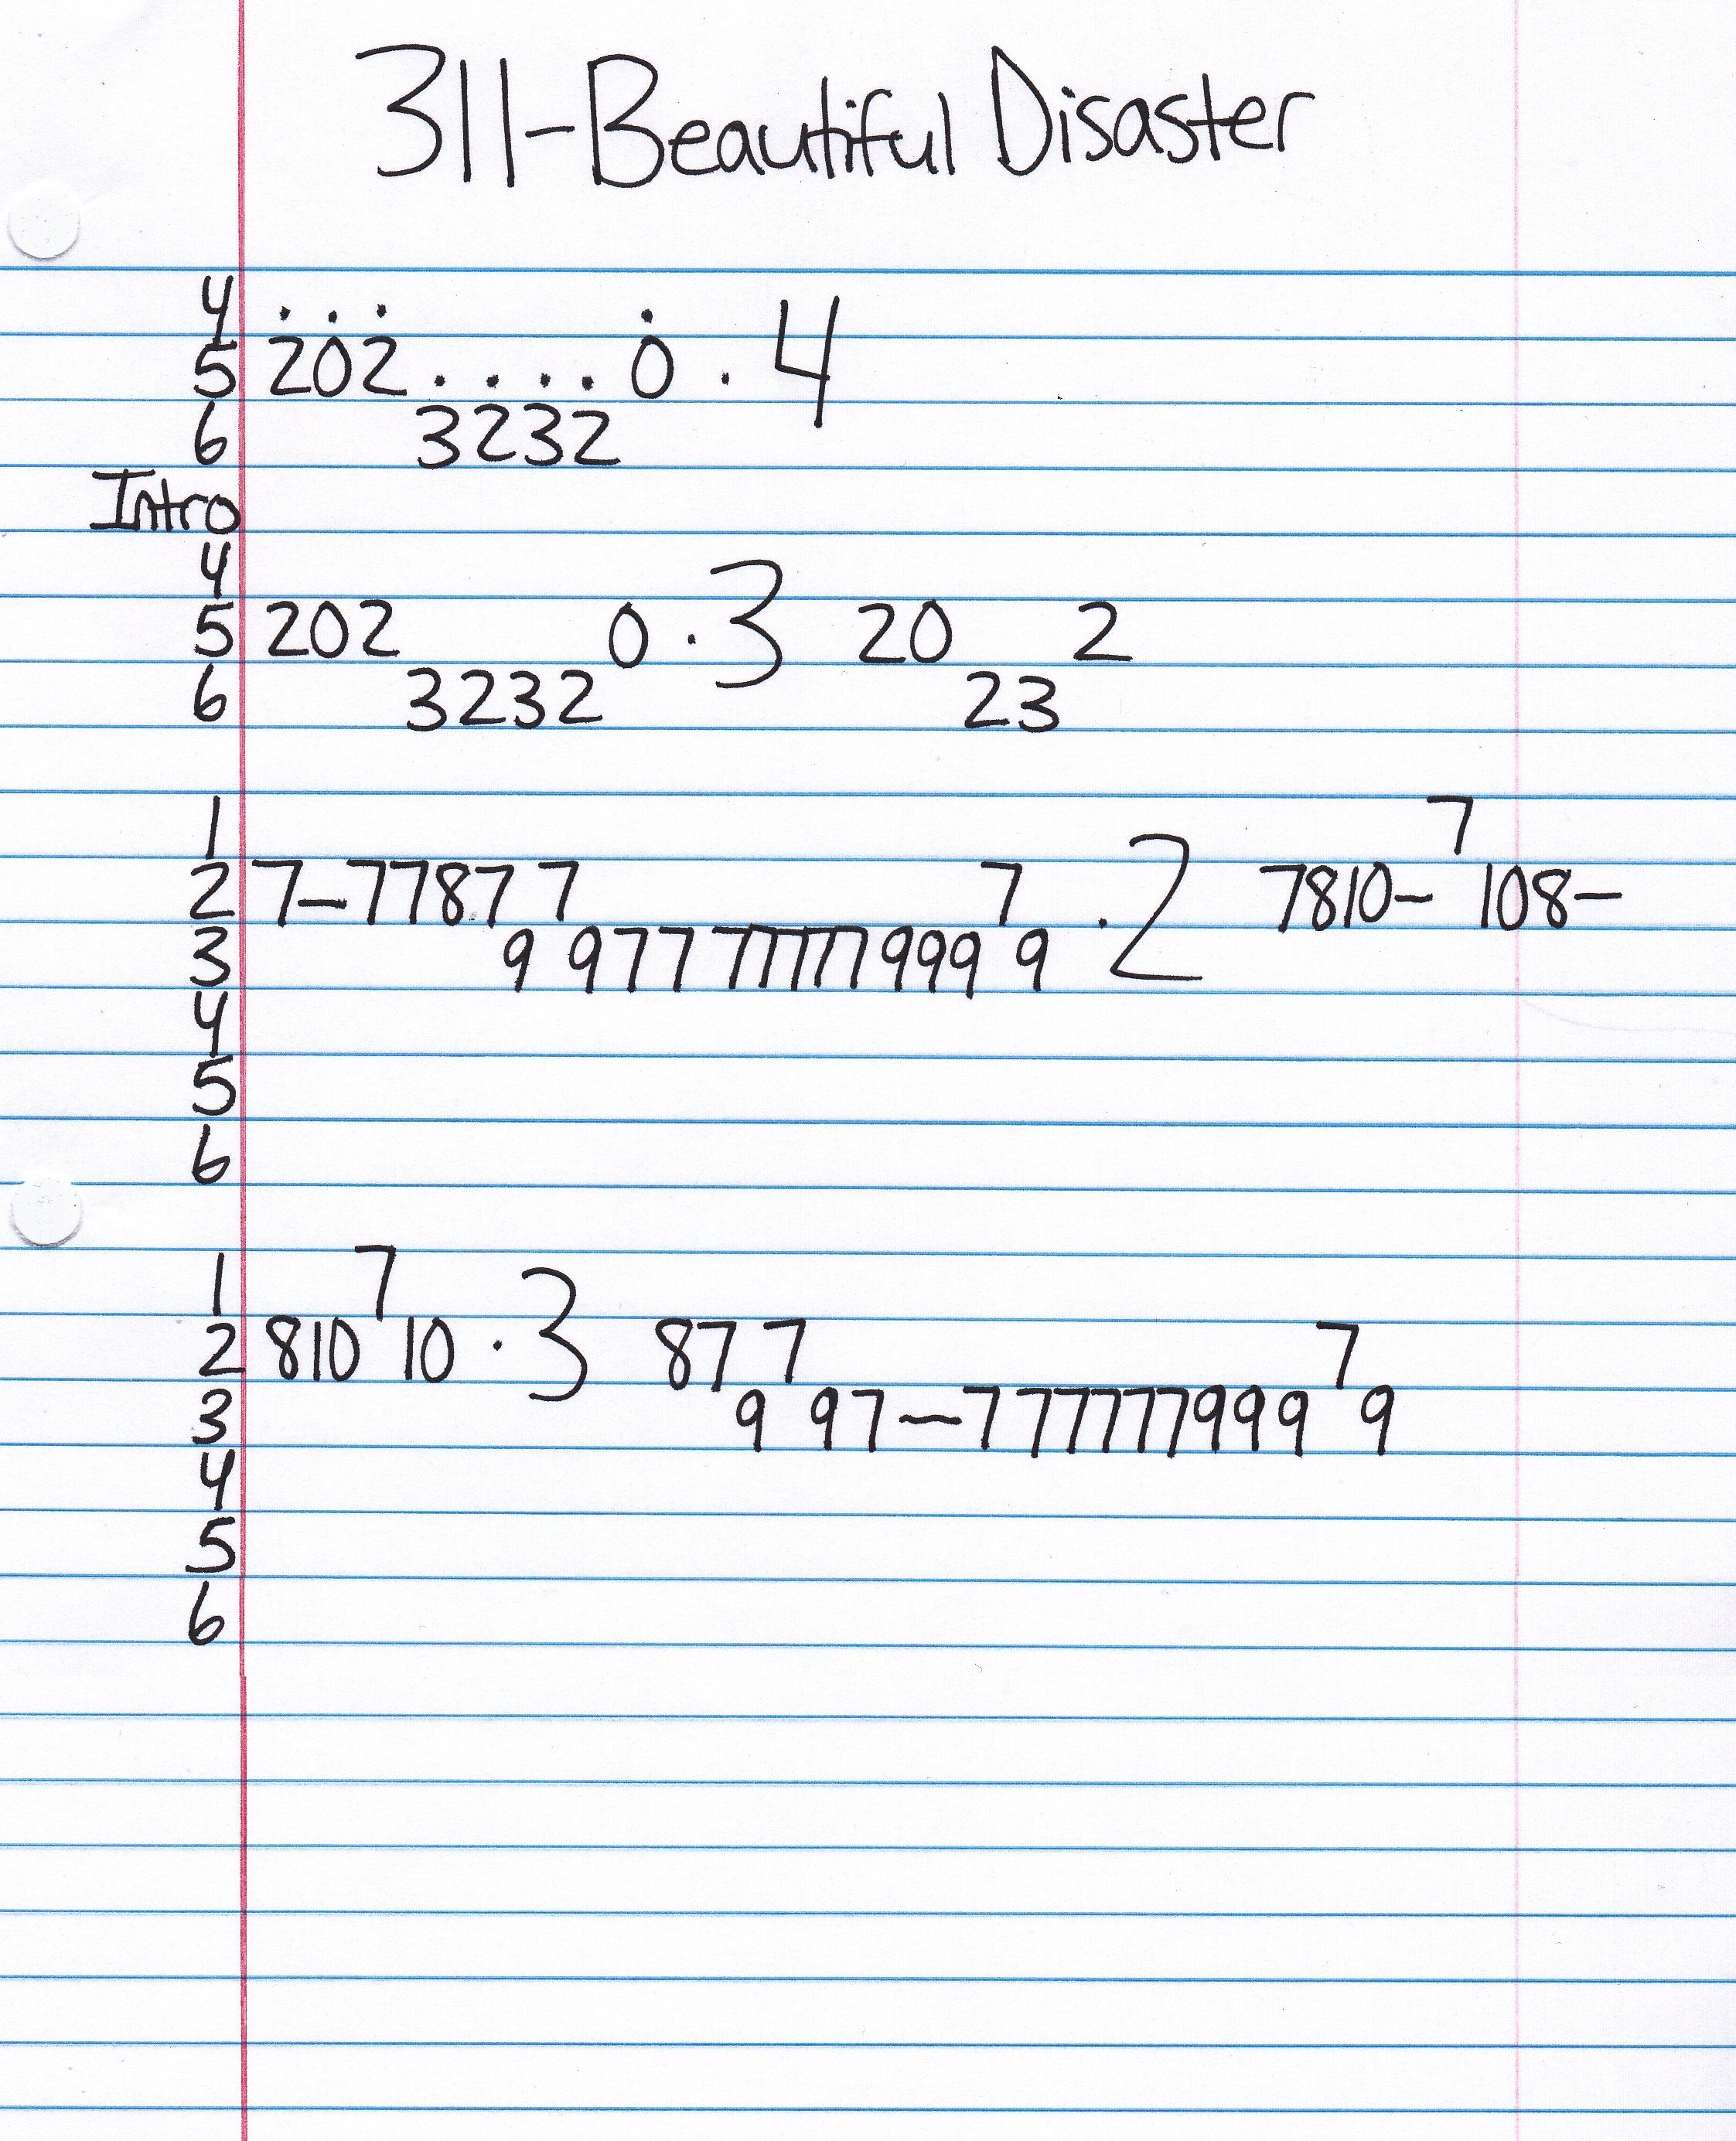 311-Beautiful Disaster
4 . . . .
5 202 . . . . 0 . 4
6 3232
Intro
4
5 202 0 . 3 20 2
6 3232 23
1 7
2 7-77877 7 . 2 7810- 108-
3 9 977 777777999 9
4
5
6
1 7
2 810 10 . 3 87 7 7
3 9 97-777777999 9
4
5
6